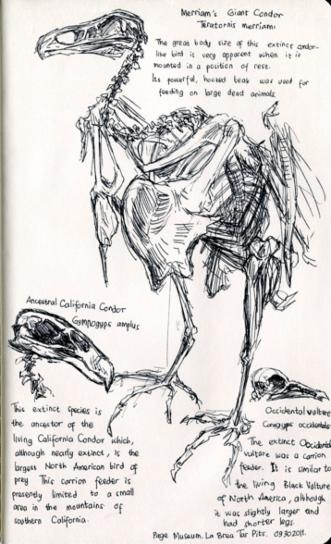 Merriam's Giant Condor
Teratornis merriami
The great body size of this extinct condor-
like bird is very apparent when it is
mounted in a position of rest.
Its powerful, hooked beak was used for
feeding on large dead animals.
Ancestral California Condor
Gymnogyps amplus
This extinct species is
the ancestor of the
living California Condor which,
although nearly extinct, is the
largest North American bird of
prey. This carrion feeder is
presently limited to a small
area in the mountains of
southern California.
Occidental Vulture
Coragyps occidentalis
The extinct Occidental
vulture was a carrion
feeder. It is similar to
the living Black Vulture
of North America, although
it was slightly larger and
had shorter legs.
Page Museum. La Brea Tar Pits. 09.30.2011.